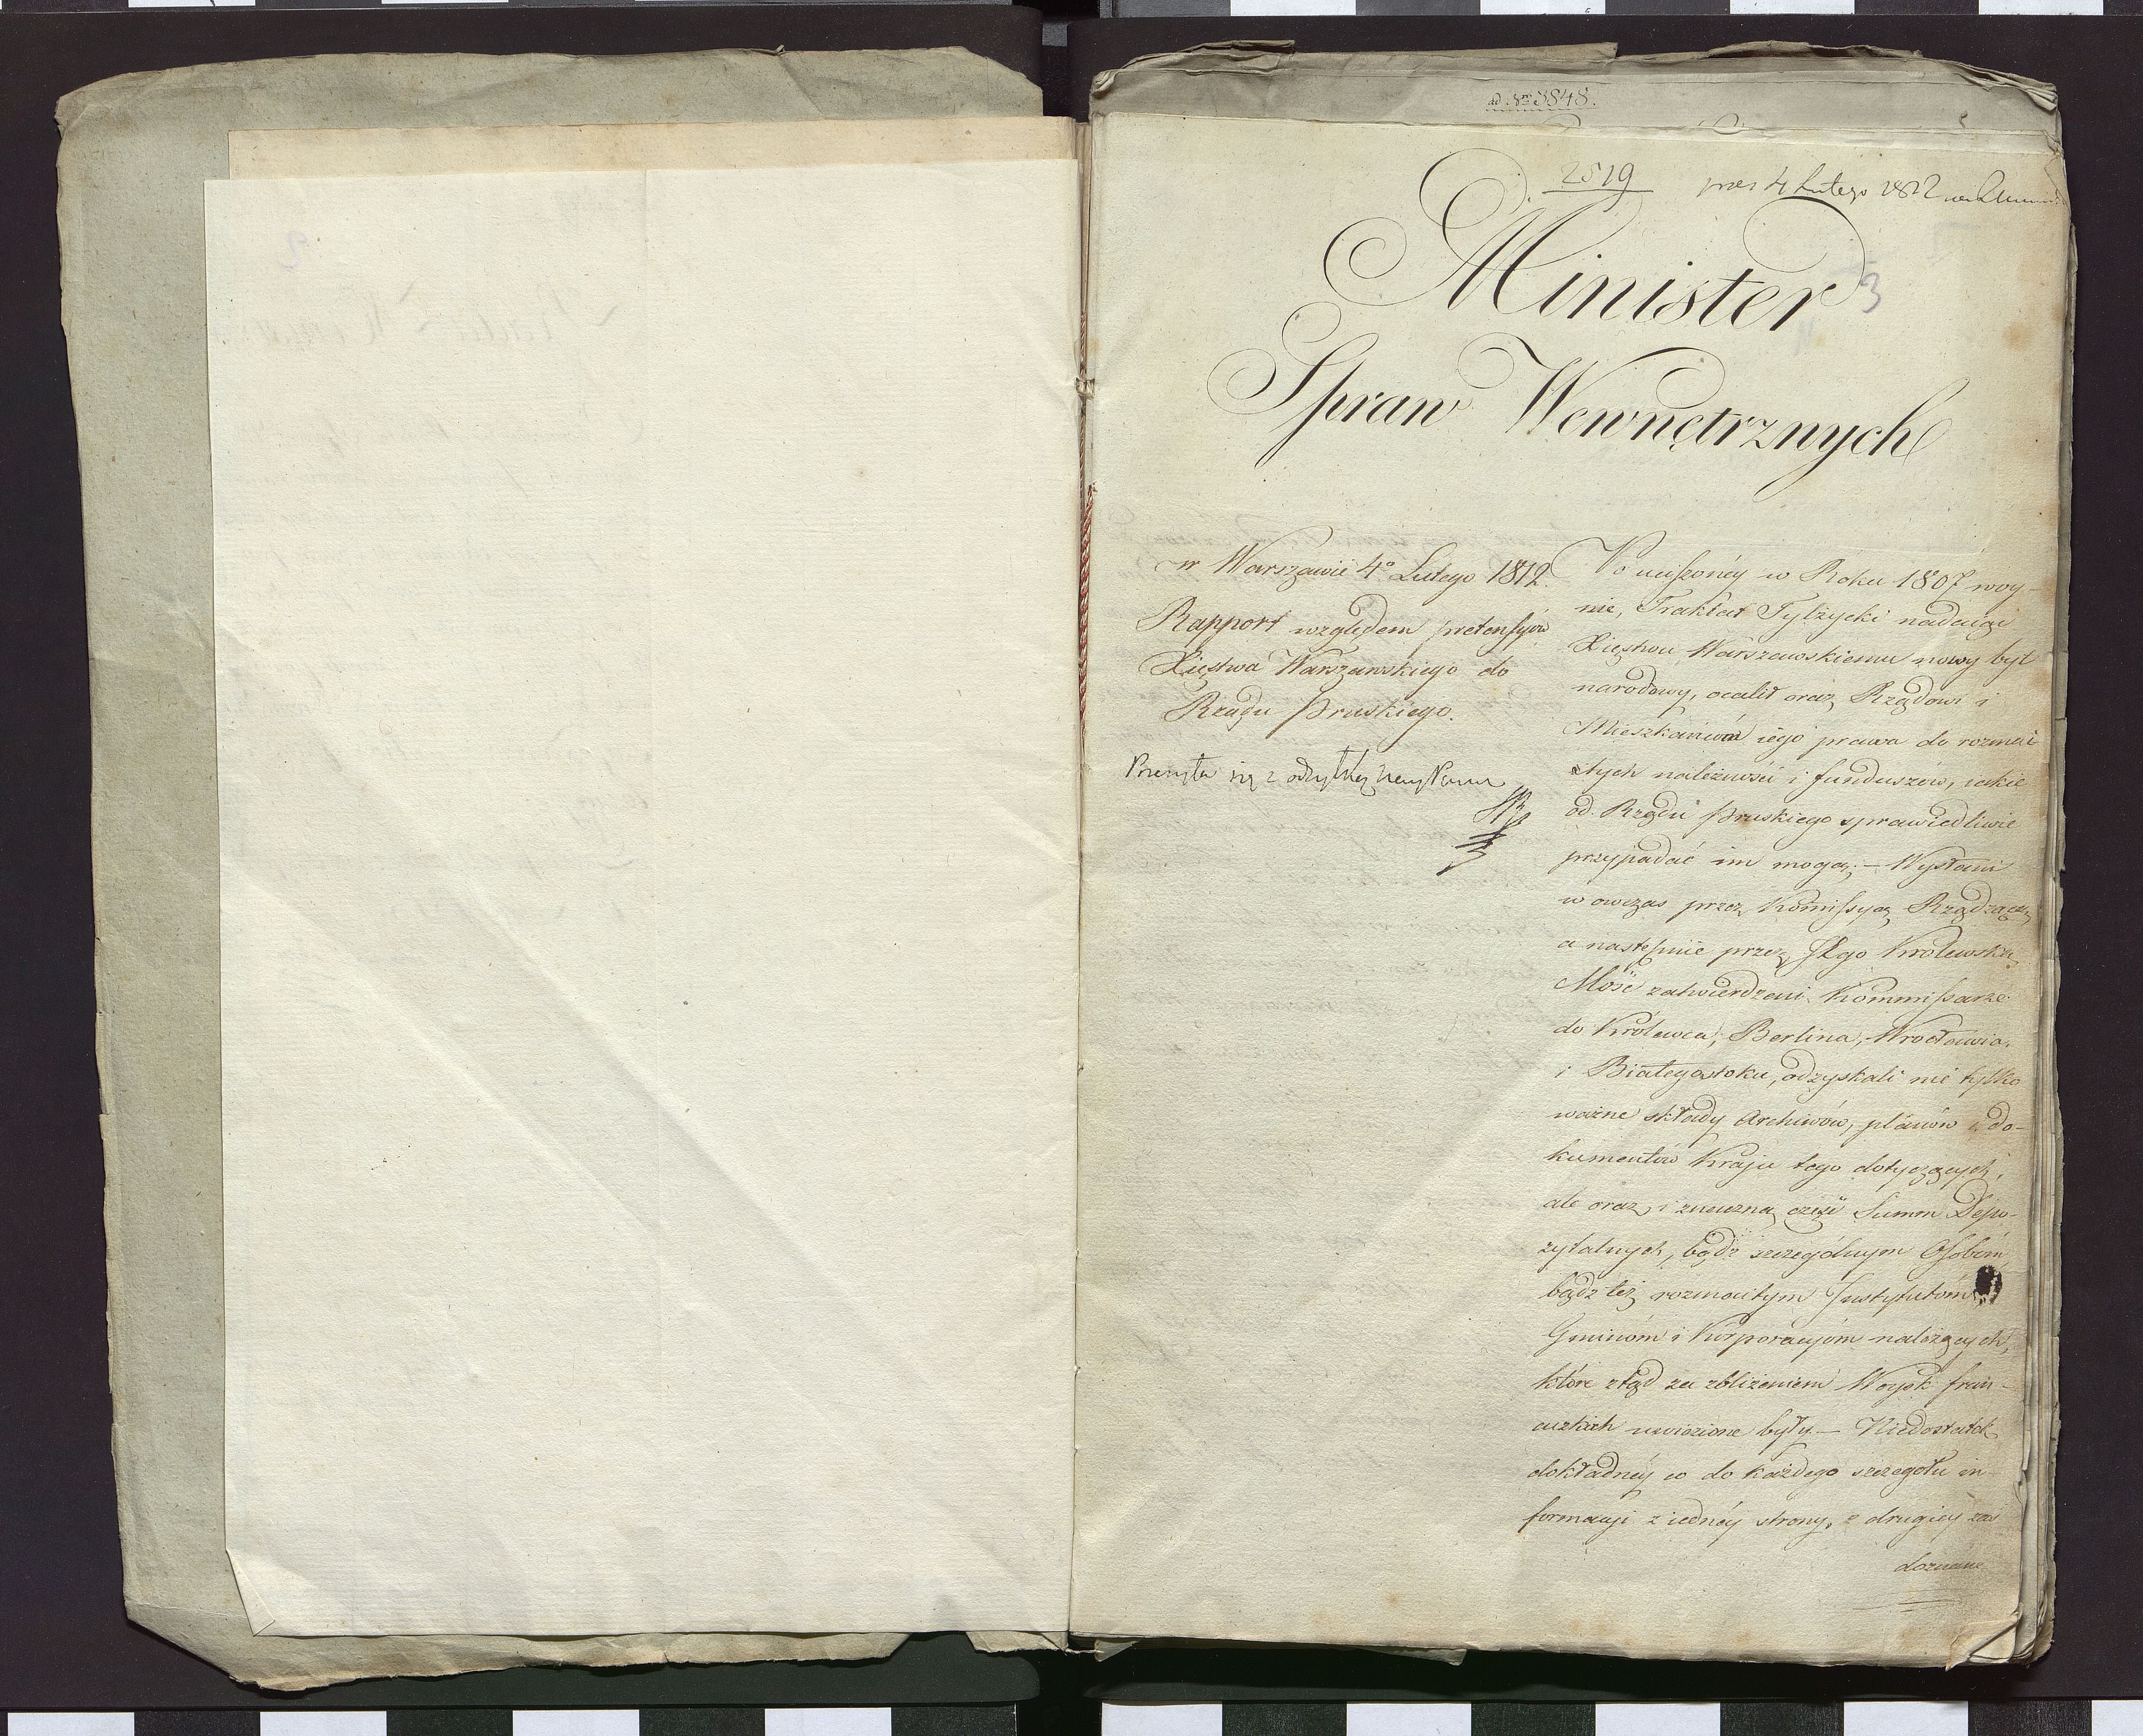 ad Nrm 3848.
2519
prez 4 Lutego 1812
3
Minister
Spraw Wewnętrznych
w Warszawie 4º Lutego 1812.
Rapport względem pretensyów
Xięstwa Warszawskiego do
Rządu Pruskiego.
Po uciszonéy w Roku 1807 woy-
nie, Traktat Tylżycki nadaiąc
Xięstwu Warszawskiemu nowy byt
narodowy, ocalił oraz Rządowi i
Mieszkańcom iego prawa do rozmai
tych należności i funduszów, iakie
od Rządu Pruskiego sprawiedliwie
przypadać im mogą; – Wysłani
w owczas przez Kommissyą Rządzącą,
a następnie przez JKgo Krolewską
Mość zatwierdzeni Kommissarze
do Królewca, Berlina, Wrocławia,
i Białegostoku, odzyskali nie tylko
ważne składy Archiwów, planów i do-
kumentów Kraju tego dotyczących,
ale oraz i znaczną część Summ Depo-
zytalnych, bądź szczególnym Osobom,
bądz też rozmaitym Instytutóm,
Gminóm i Korporacyóm należących,
które ztąd za zbliżeniem Woysk fran-
cuzkich uwiezione były. – Niedostatek
dokładnéy co do każdego szczegołu in-
formacyi z iednéy strony, z drugiéy zaś
doznane